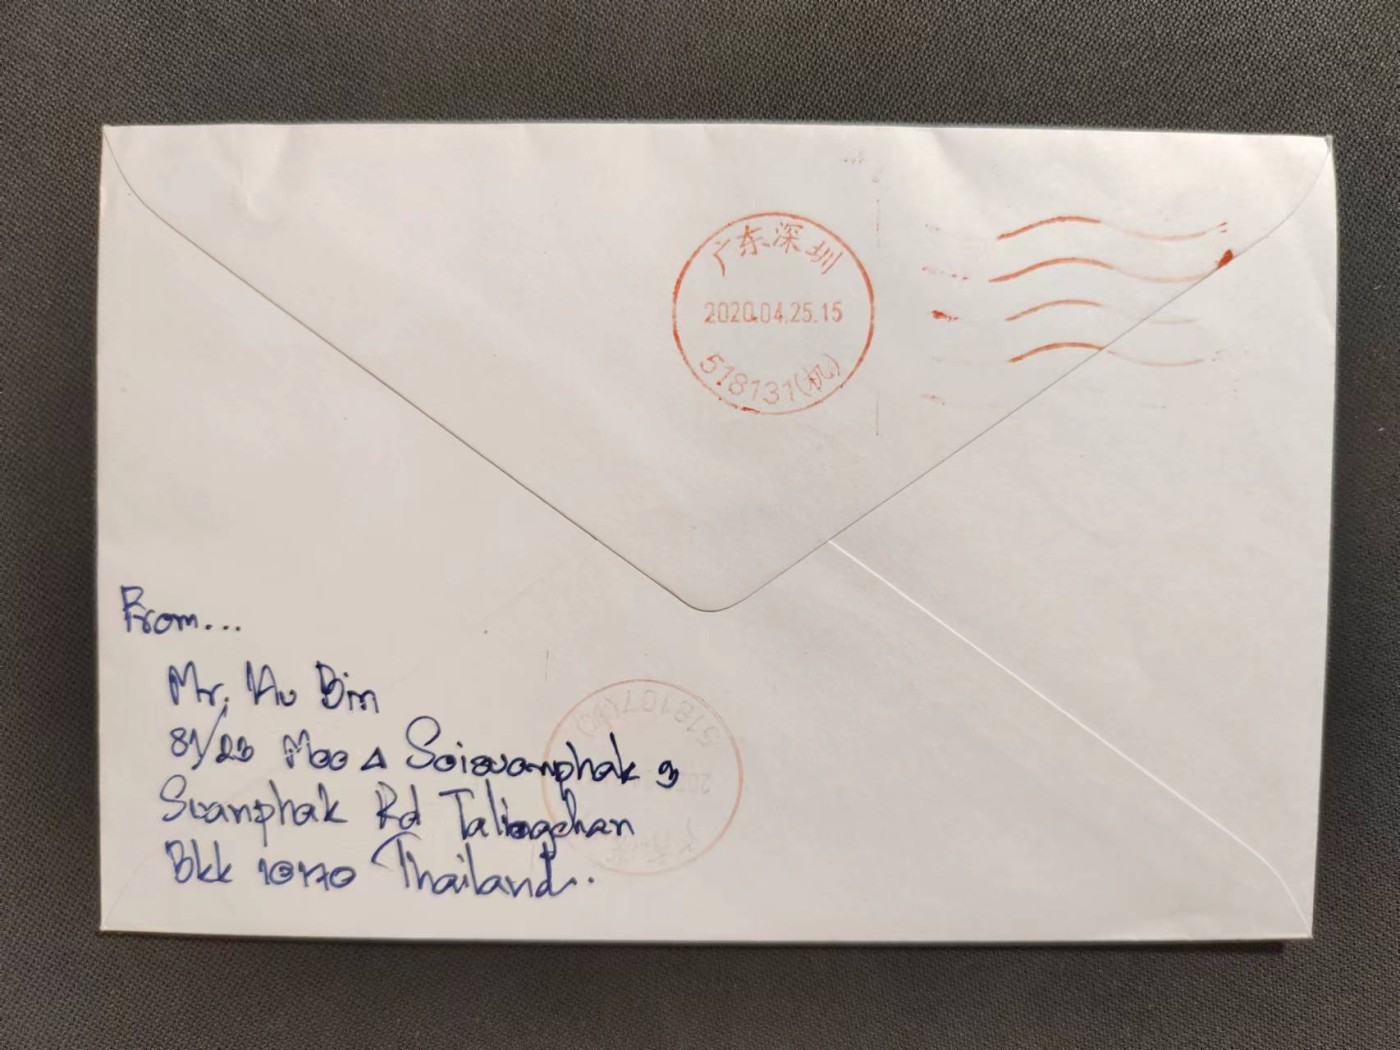 广东深圳
2020.04.25.15
518131(机)
From...
Mr. Hu Bin
81/23 Moo 4 Soisuanphak 9
Suanphak Rd Talingchan
Bkk 10170 Thailand.
518107